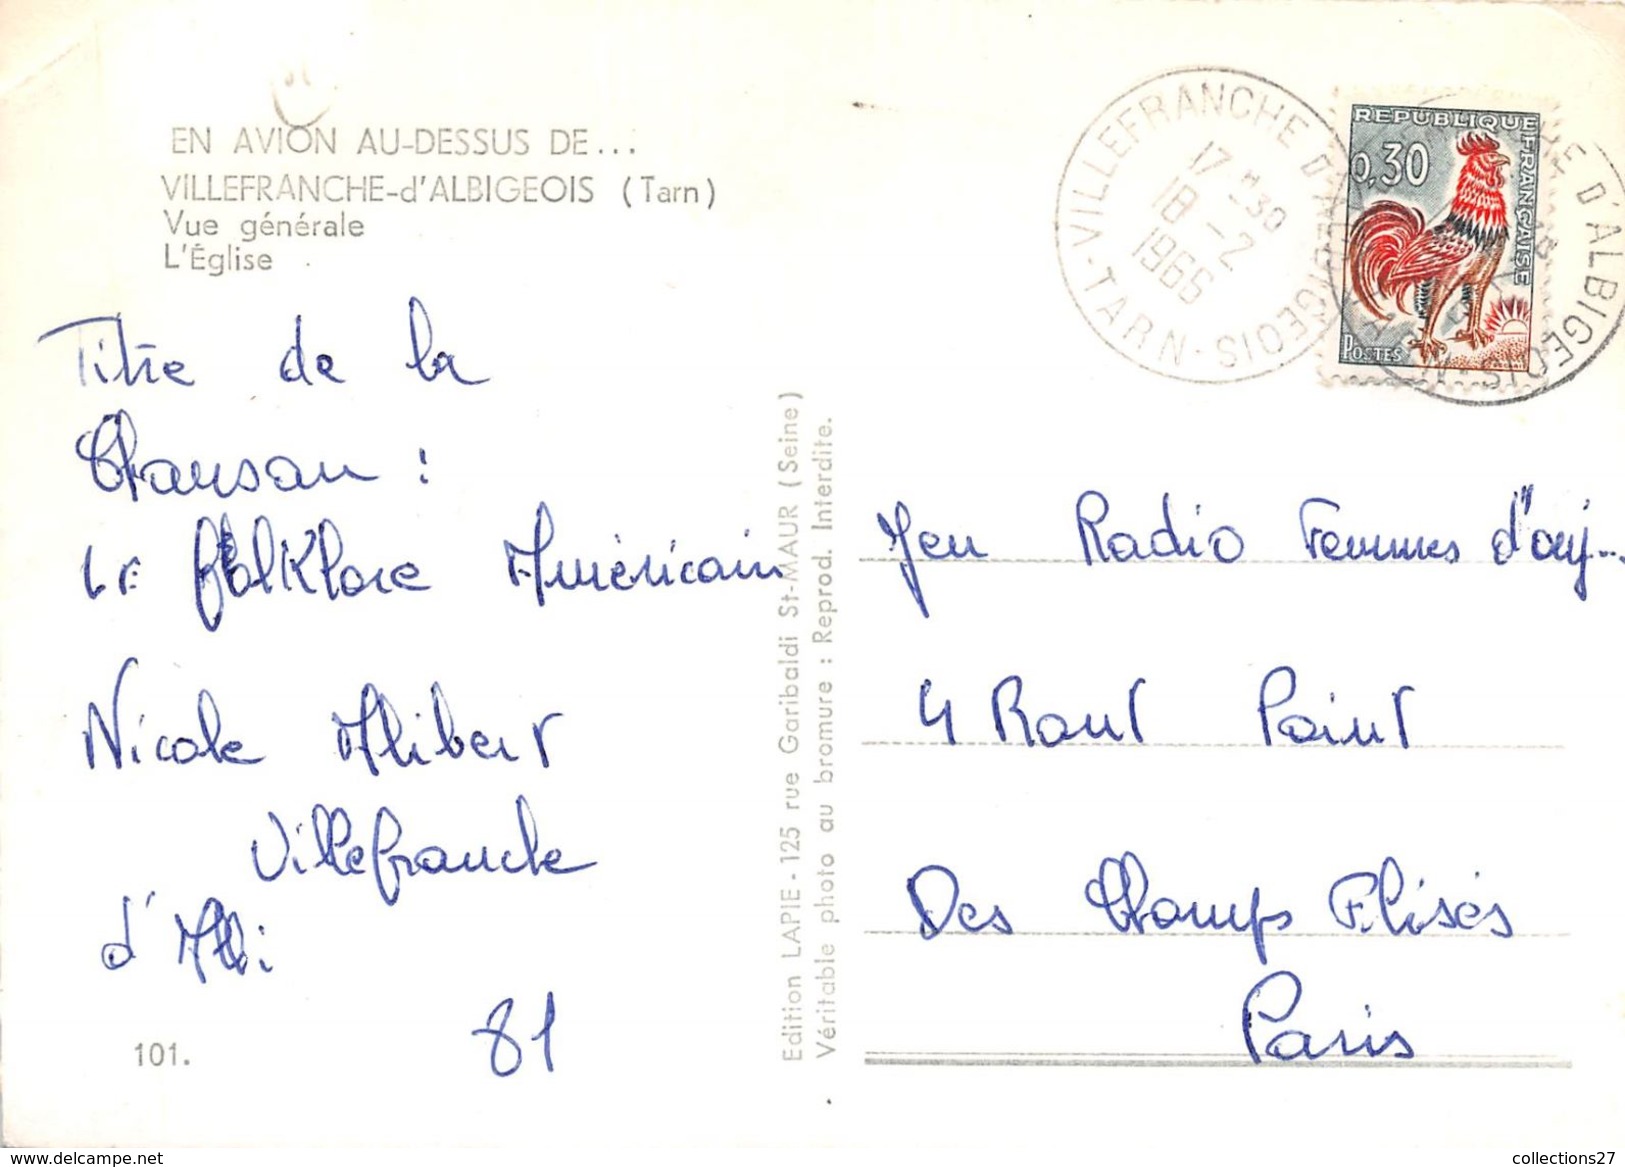 EN AVION AU-DESSUS DE...
VILLEFRANCHE-d'ALBIGEOIS (Tarn)
Vue générale
L'Église
Titre de la
Chanson :
Le folklore Américain
Nicole Alibert
Villefranche
d'Albi
81
101.
Edition LAPIE - 125 rue Garibaldi St-MAUR (Seine)
Véritable photo au bromure : Reprod. Interdite.
VILLEFRANCHE D'ALBIGEOIS - TARN -
17 H 30
18 - 2
1966
REPUBLIQUE FRANÇAISE
0,30
POSTES
Jeu Radio Femmes d'auj...
4 Ront Point
Des Champs Elisés
Paris
www.delcampe.net
collections27